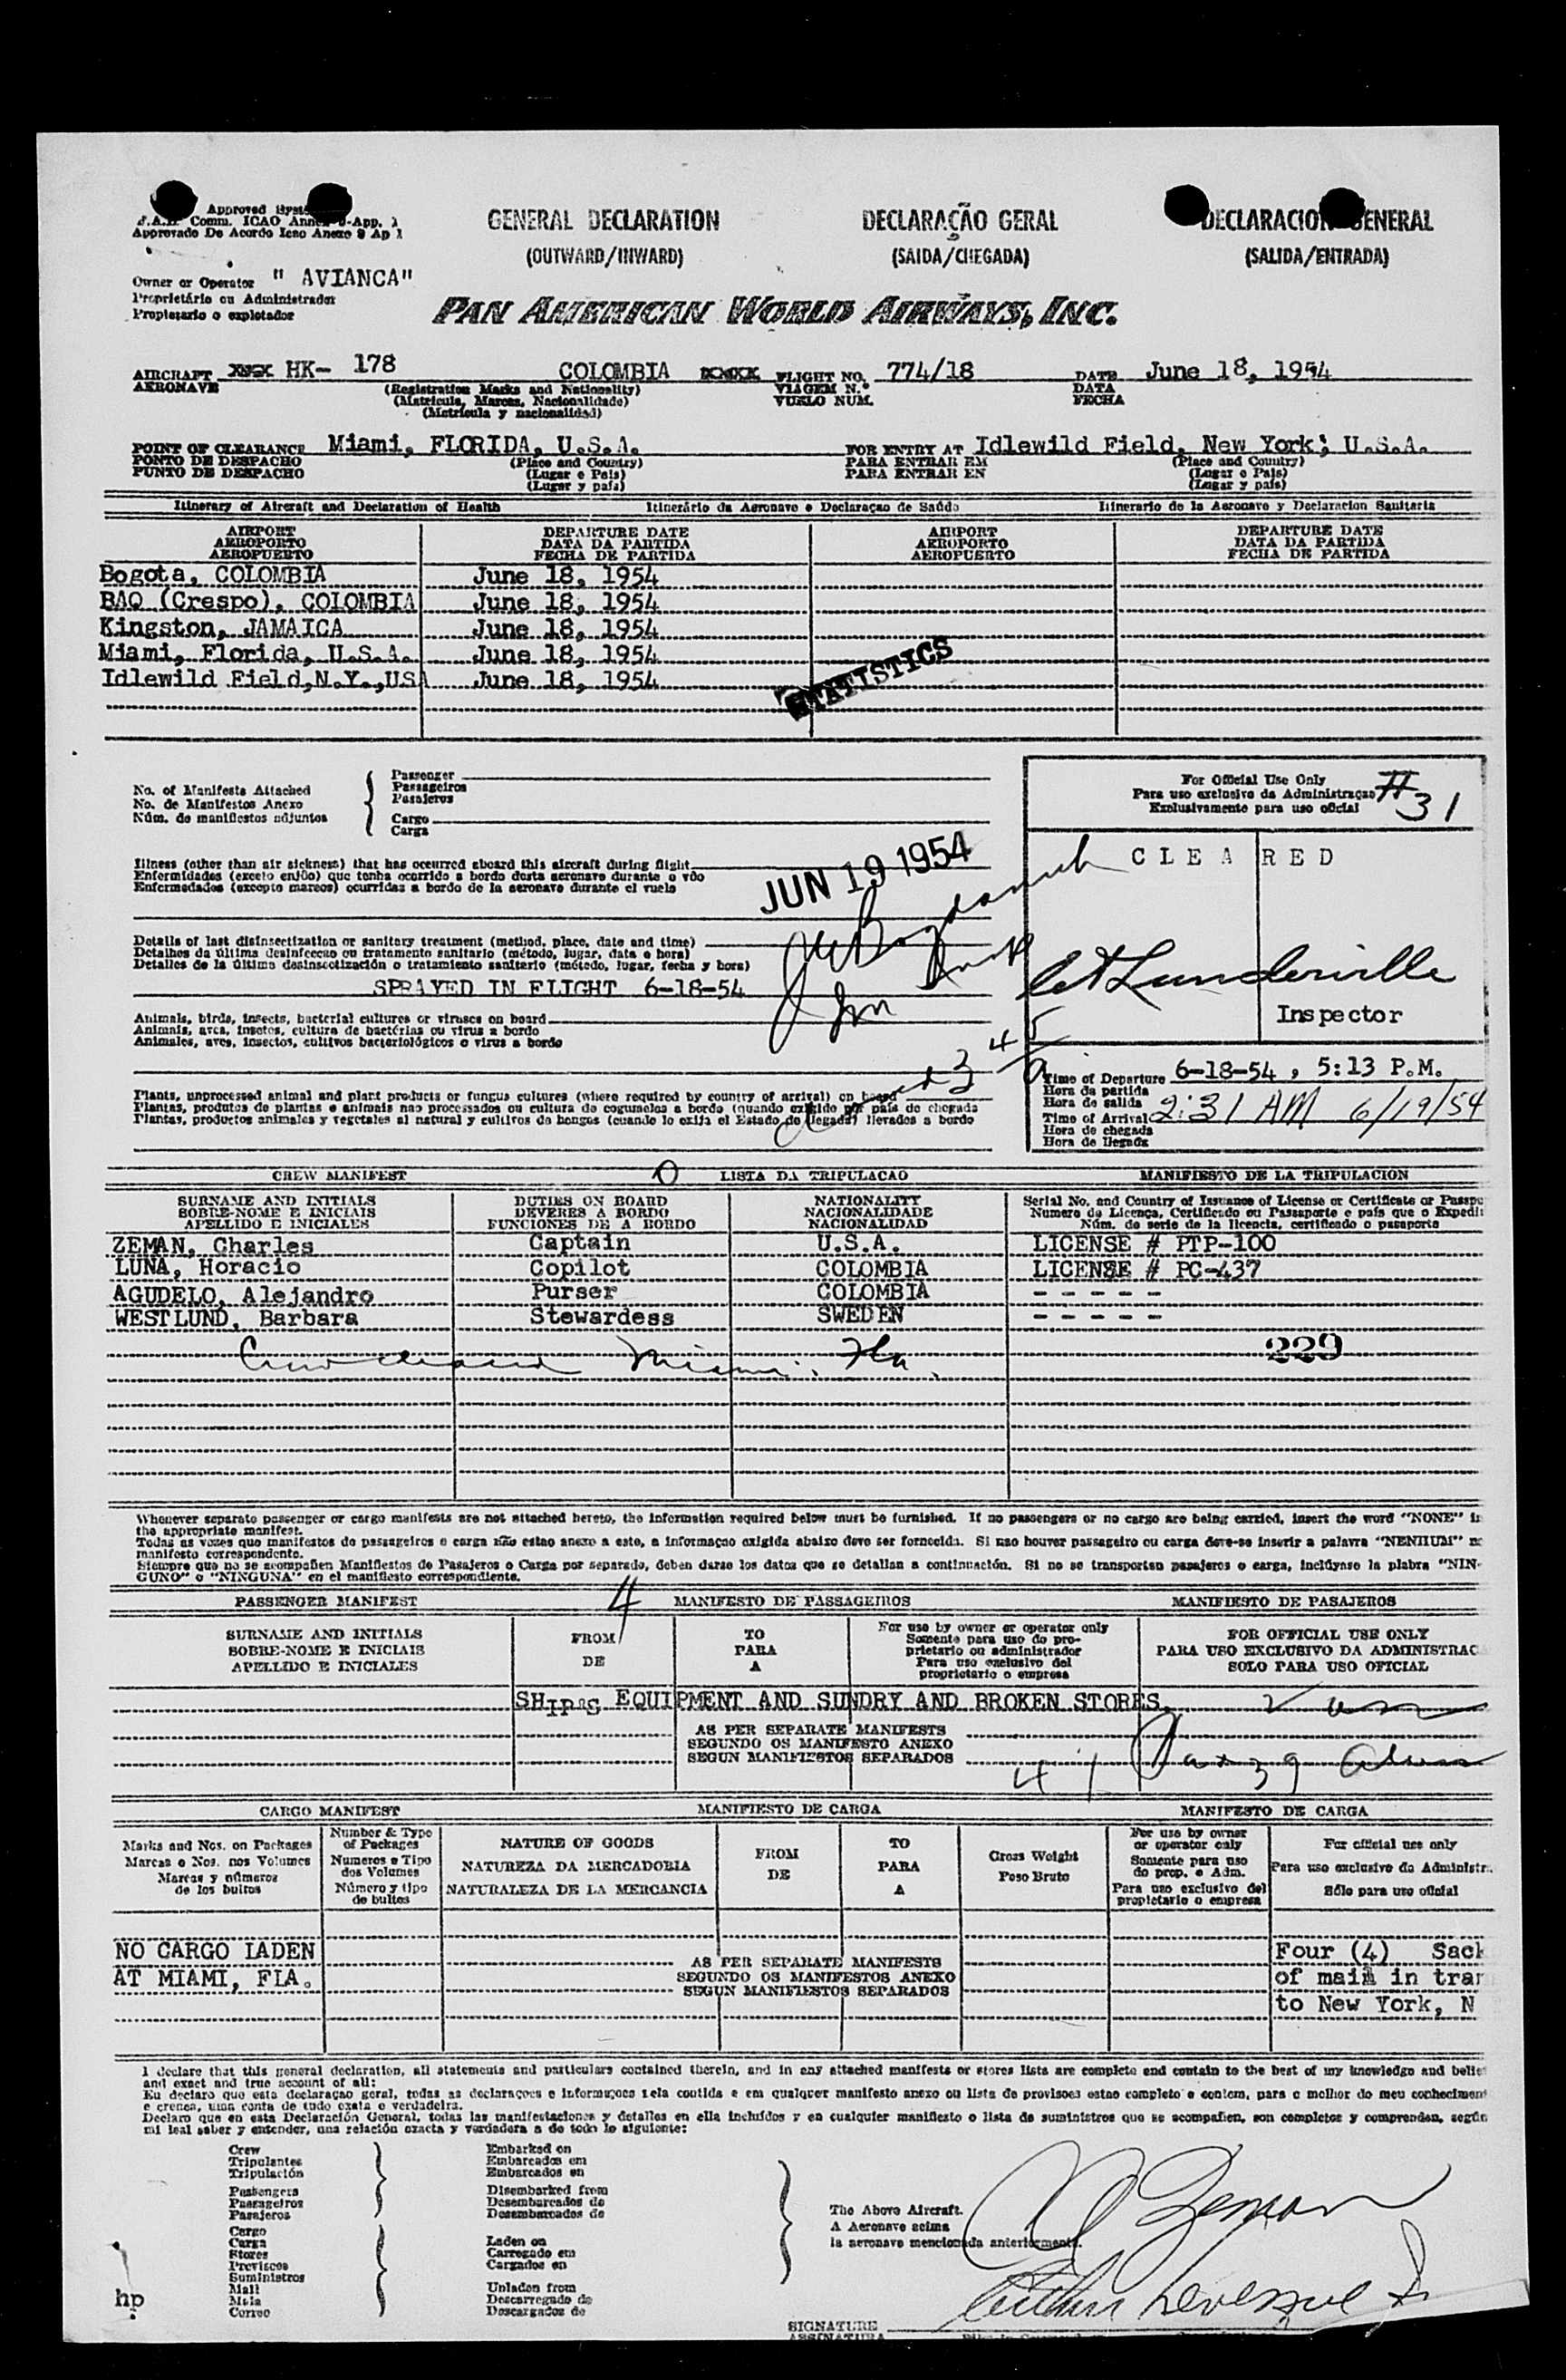 Approved
Comm. ICAO Annex 9-App. 1
Approvado De Acordo Icao Anexo 9 Ap 1
GENERAL DECLARATION
(OUTWARD/INWARD)
DECLARAÇÃO GERAL
(SAIDA/CHEGADA)
DECLARACION GENERAL
(SALIDA/ENTRADA)
Owner or Operator " AVIANCA"
Proprietário ou Administrador
Propietario o explotador
PAN AMERICAN WORLD AIRWAYS, INC.
AIRCRAFT HK- 178 COLOMBIA FLIGHT NO. 774/18 DATE June 18, 1954
AERONAVE (Registration Marks and Nationality) VIAGEM N.º DATA
(Matricula, Marcas, Nacionalidade) VUELO NUM. FECHA
(Matricula y nacionalidad)
POINT OF CLEARANCE Miami, FLORIDA, U.S.A. FOR ENTRY AT Idlewild Field, New York, U.S.A.
PONTO DE DESPACHO (Place and Country) PARA ENTRAR EM (Place and Country)
PUNTO DE DESPACHO (Lugar e Pais) PARA ENTRAR EN (Lugar e Pais)
(Lugar y país) (Lugar y país)
Itinerary of Aircraft and Declaration of Health Itinerário da Aeronave e Declaraçao de Saúde Itinerario de la Aeronave y Declaracion Sanitaria
AIRPORT DEPARTURE DATE AIRPORT DEPARTURE DATE
AEROPORTO DATA DA PARTIDA AEROPORTO DATA DA PARTIDA
AEROPUERTO FECHA DE PARTIDA AEROPUERTO FECHA DE PARTIDA
Bogota, COLOMBIA June 18, 1954
BAQ (Crespo), COLOMBIA June 18, 1954
Kingston, JAMAICA June 18, 1954
Miami, Florida, U.S.A. June 18, 1954
Idlewild Field,N.Y.,USA June 18, 1954
STATISTICS
No. of Manifests Attached
No. de Manifestos Anexo
Núm. de manifiestos adjuntos
Passenger
Passageiros
Pasajeros
Cargo
Carga
For Official Use Only
Para uso exclusivo da Administraçao
Exclusivamente para uso oficial
#31
CLEARED
Illness (other than air sickness) that has occurred aboard this aircraft during flight
Enfermidades (exceto enjôo) que tenha ocorrido a bordo desta aeronave durante o vôo
Enfermedades (excepto mareos) ocurridas a bordo de la aeronave durante el vuelo
JUN 19 1954
Details of last disinsectization or sanitary treatment (method, place, date and time)
Detalhes da última desinfeccao ou tratamento sanitario (método, lugar, data e hora)
Detalles de la última desinsectización o tratamiento sanitario (método, lugar, fecha y hora)
SPRAYED IN FLIGHT 6-18-54
Inspector
Animals, birds, insects, bacterial cultures or viruses on board
Animais, aves, insetos, cultura de bactérias ou virus a bordo
Animales, aves, insectos, cultivos bacteriológicos o virus a bordo
Time of Departure 6-18-54 , 5:13 P.M.
Hora da partida
Hora de salida
Time of Arrival 2:31 AM 6/19/54
Hora de chegada
Hora de llegada
Plants, unprocessed animal and plant products or fungus cultures (where required by country of arrival) on board
Plantas, produtos de plantas e animais nao processados ou cultura de cogumelos a bordo (quando exigido por país de chegada
Plantas, productos animales y vegetales al natural y cultivos de hongos (cuando lo exija el Estado de llegada) llevados a bordo
CREW MANIFEST 0 LISTA DA TRIPULACAO MANIFIESTO DE LA TRIPULACION
SURNAME AND INITIALS DUTIES ON BOARD NATIONALITY Serial No. and Country of Issuance of License or Certificate or Passpo
SOBRE-NOME E INICIAIS DEVERES A BORDO NACIONALIDADE Numero da Licença, Certificado ou Passaporte e país que o Expedi
APELLIDO E INICIALES FUNCIONES DE A BORDO NACIONALIDAD Núm. de serie de la licencia, certificado o pasaporte
ZEMAN, Charles Captain U.S.A. LICENSE # PTP-100
LUNA, Horacio Copilot COLOMBIA LICENSE # PC-437
AGUDELO, Alejandro Purser COLOMBIA - - - - -
WESTLUND, Barbara Stewardess SWEDEN - - - - -
Crew cleared Miami, Fla. 229
Whenever separate passenger or cargo manifests are not attached hereto, the information required below must be furnished. If no passengers or no cargo are being carried, insert the word "NONE" in
the appropriate manifest.
Todas as vezes que manifestos de passageiros e carga não estao anexo a este, a informaçao exigida abaixo deve ser fornecida. Si nao houver passageiro ou carga deve-se inserir a palavra "NENHUM" no
manifesto correspondente.
Siempre que no se acompañen Manifiestos de Pasajeros o Carga por separado, deben darse los datos que se detallan a continuación. Si no se transportan pasajeros o carga, inclúyase la plabra "NIN-
GUNO" o "NINGUNA" en el manifiesto correspondiente.
PASSENGER MANIFEST 4 MANIFESTO DE PASSAGEIROS MANIFIESTO DE PASAJEROS
SURNAME AND INITIALS
SOBRE-NOME E INICIAIS
APELLIDO E INICIALES
FROM
DE
TO
PARA
A
For use by owner or operator only
Somente para uso do pro-
prietario ou administrador
Para uso exclusivo del
propietario o empresa
FOR OFFICIAL USE ONLY
PARA USO EXCLUSIVO DA ADMINISTRAC
SOLO PARA USO OFICIAL
SHIP'S EQUIPMENT AND SUNDRY AND BROKEN STORES.
AS PER SEPARATE MANIFESTS
SEGUNDO OS MANIFESTO ANEXO
SEGUN MANIFIESTOS SEPARADOS
41
39
CARGO MANIFEST MANIFIESTO DE CARGA MANIFESTO DE CARGA
Marks and Nos. on Packages
Marcas e Nos. nos Volumes
Marcas y números
de los bultos
Number & Type
of Packages
Numeros e Tipo
dos Volumes
Número y tipo
de bultos
NATURE OF GOODS
NATUREZA DA MERCADORIA
NATURALEZA DE LA MERCANCIA
FROM
DE
TO
PARA
A
Gross Weight
Peso Bruto
For use by owner
or operator only
Somente para uso
do prop. e Adm.
Para uso exclusivo del
propietario o empresa
For official use only
Para uso exclusivo da Administr.
Sólo para uso oficial
NO CARGO LADEN
AT MIAMI, FLA.
AS PER SEPARATE MANIFESTS
SEGUNDO OS MANIFESTOS ANEXO
SEGUN MANIFIESTOS SEPARADOS
Four (4) Sack
of mail in tran
to New York, N
I declare that this general declaration, all statements and particulars contained therein, and in any attached manifests or stores lists are complete and contain to the best of my knowledge and belief
and exact and true account of all:
Eu declaro que esta declaraçao geral, todas as declaraçoes e informaçoes nela contida e em qualquer manifesto anexo ou lista de provisoes estao completo e contem, para o melhor do meu conheciment
e crenca, uma conta de tudo exata e verdadeira.
Declaro que en esta Declaración General, todas las manifestaciones y detalles en ella incluidos y en cualquier manifiesto o lista de suministros que se acompañen, son completos y comprenden, según
mi leal saber y entender, una relación exacta y verdadera a de todo lo siguiente:
Crew
Tripulantes
Tripulación
Passengers
Passageiros
Pasajeros
Cargo
Carga
Stores
Provisoes
Suministros
Mail
Mala
Correo
Embarked on
Embarcados em
Embarcados en
Disembarked from
Desembarcados de
Desembarcados de
Laden on
Carregado em
Cargados en
Unladen from
Descarregado de
Descargados de
The Above Aircraft.
A Aeronave acima
la aeronave mencionada anteriormente.
Zeman
hp
SIGNATURE
ASSINATURA